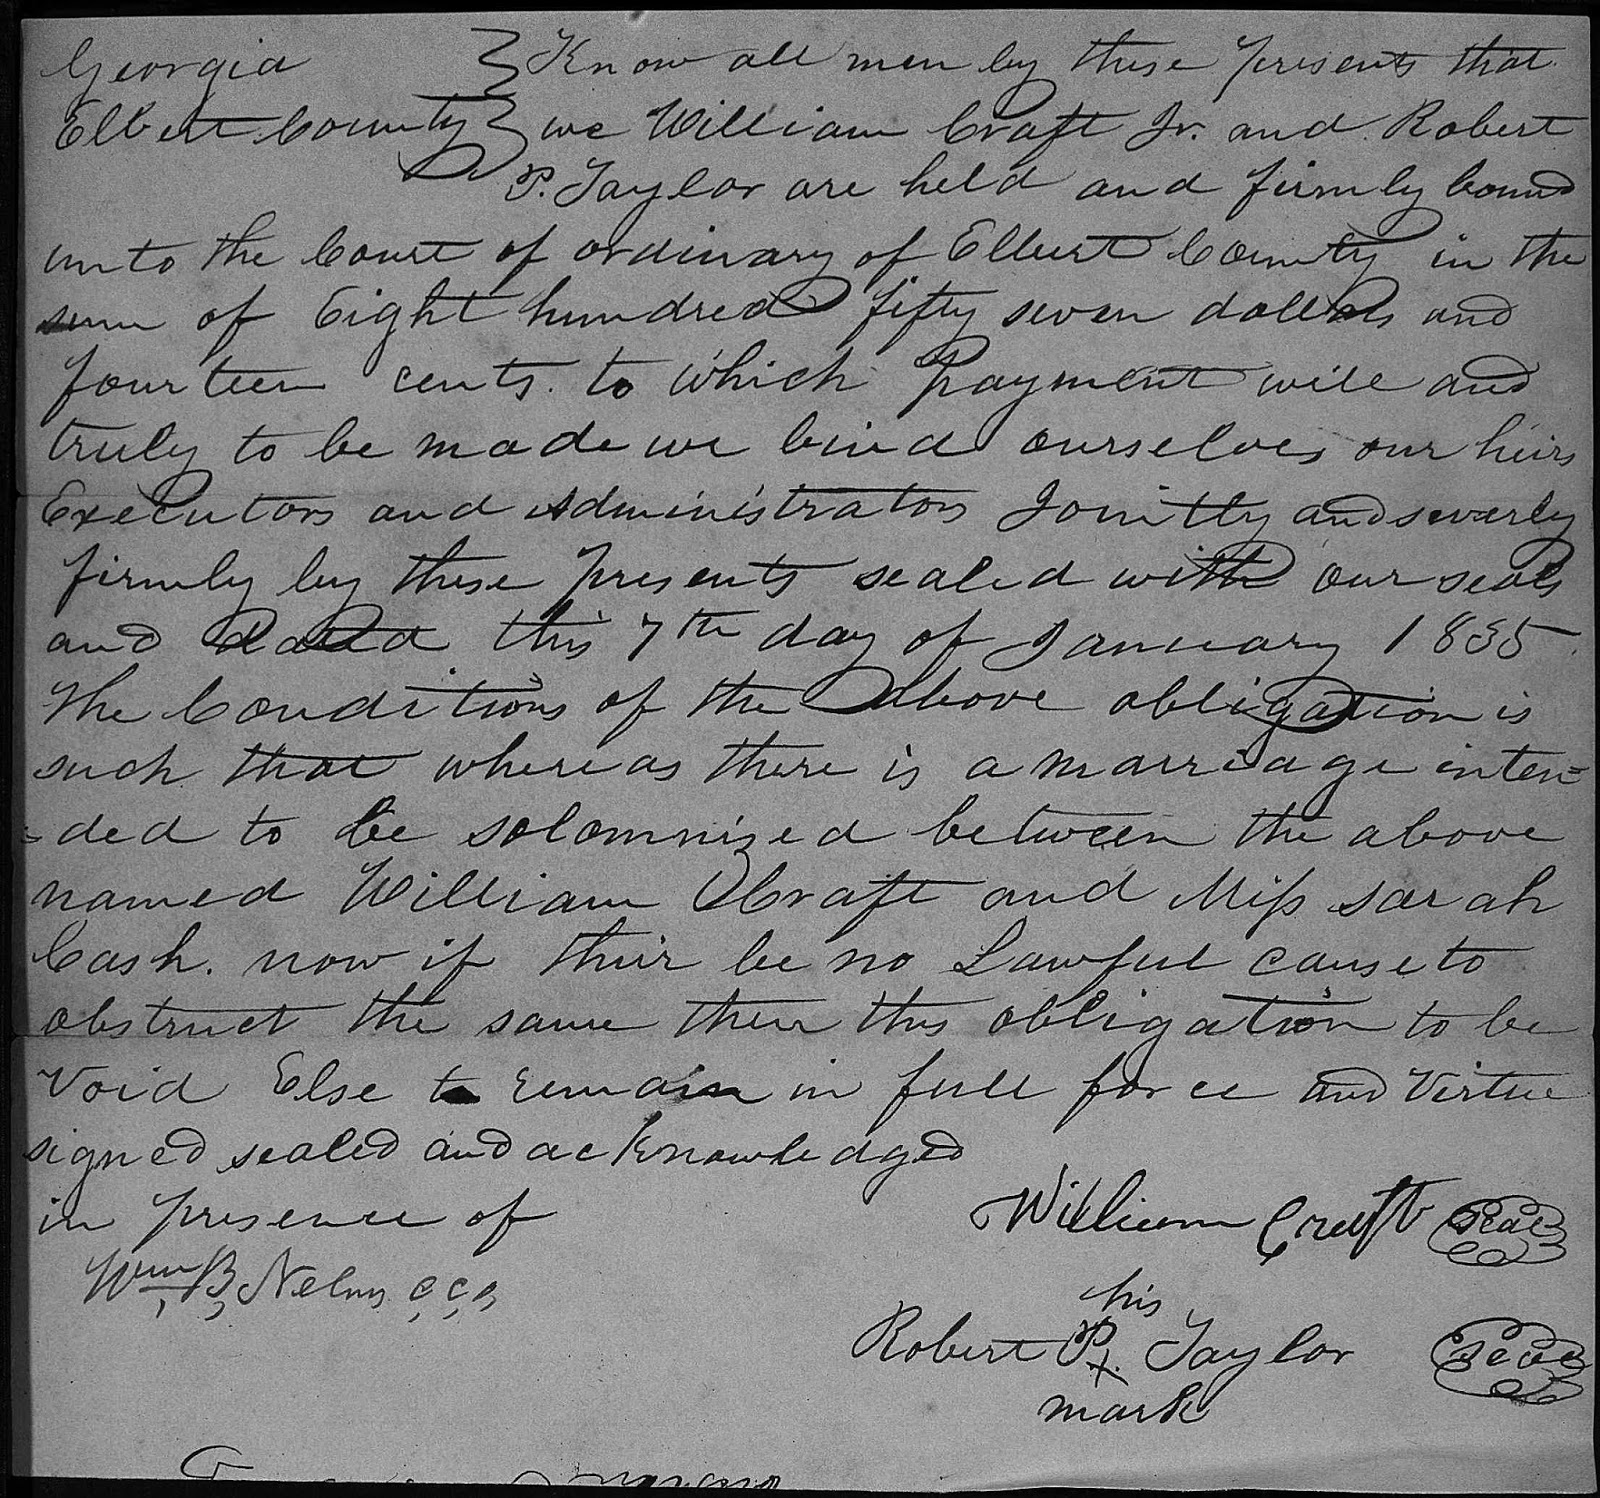 Georgia } Know all men by these presents that
Elbert County } we William Craft Jr. and Robert
P. Taylor are held and firmly bound
unto the Court of ordinary of Elbert County in the
sum of Eight hundred fifty seven dollars and
fourteen cents. to which Payment will and
truly to be made we bind ourselves our heirs
Executors and Administrators Jointly and severly
firmly by these presents sealed with our seals
and dated this 7th day of January 1835
The Conditions of the above obligation is
such that whereas there is a marriage inten=
=ded to be solomnized between the above
named William Craft and Miss Sarah
Cash. now if thier be no Lawful cause to
obstruct the same then this obligation to be
Void Else to remain in full force and Virtue
signed sealed and acknowledged
in presence of
William Craft Seal
Wm B, Nelms, C, C, O,
his
Robert P. X Taylor Seal
mark